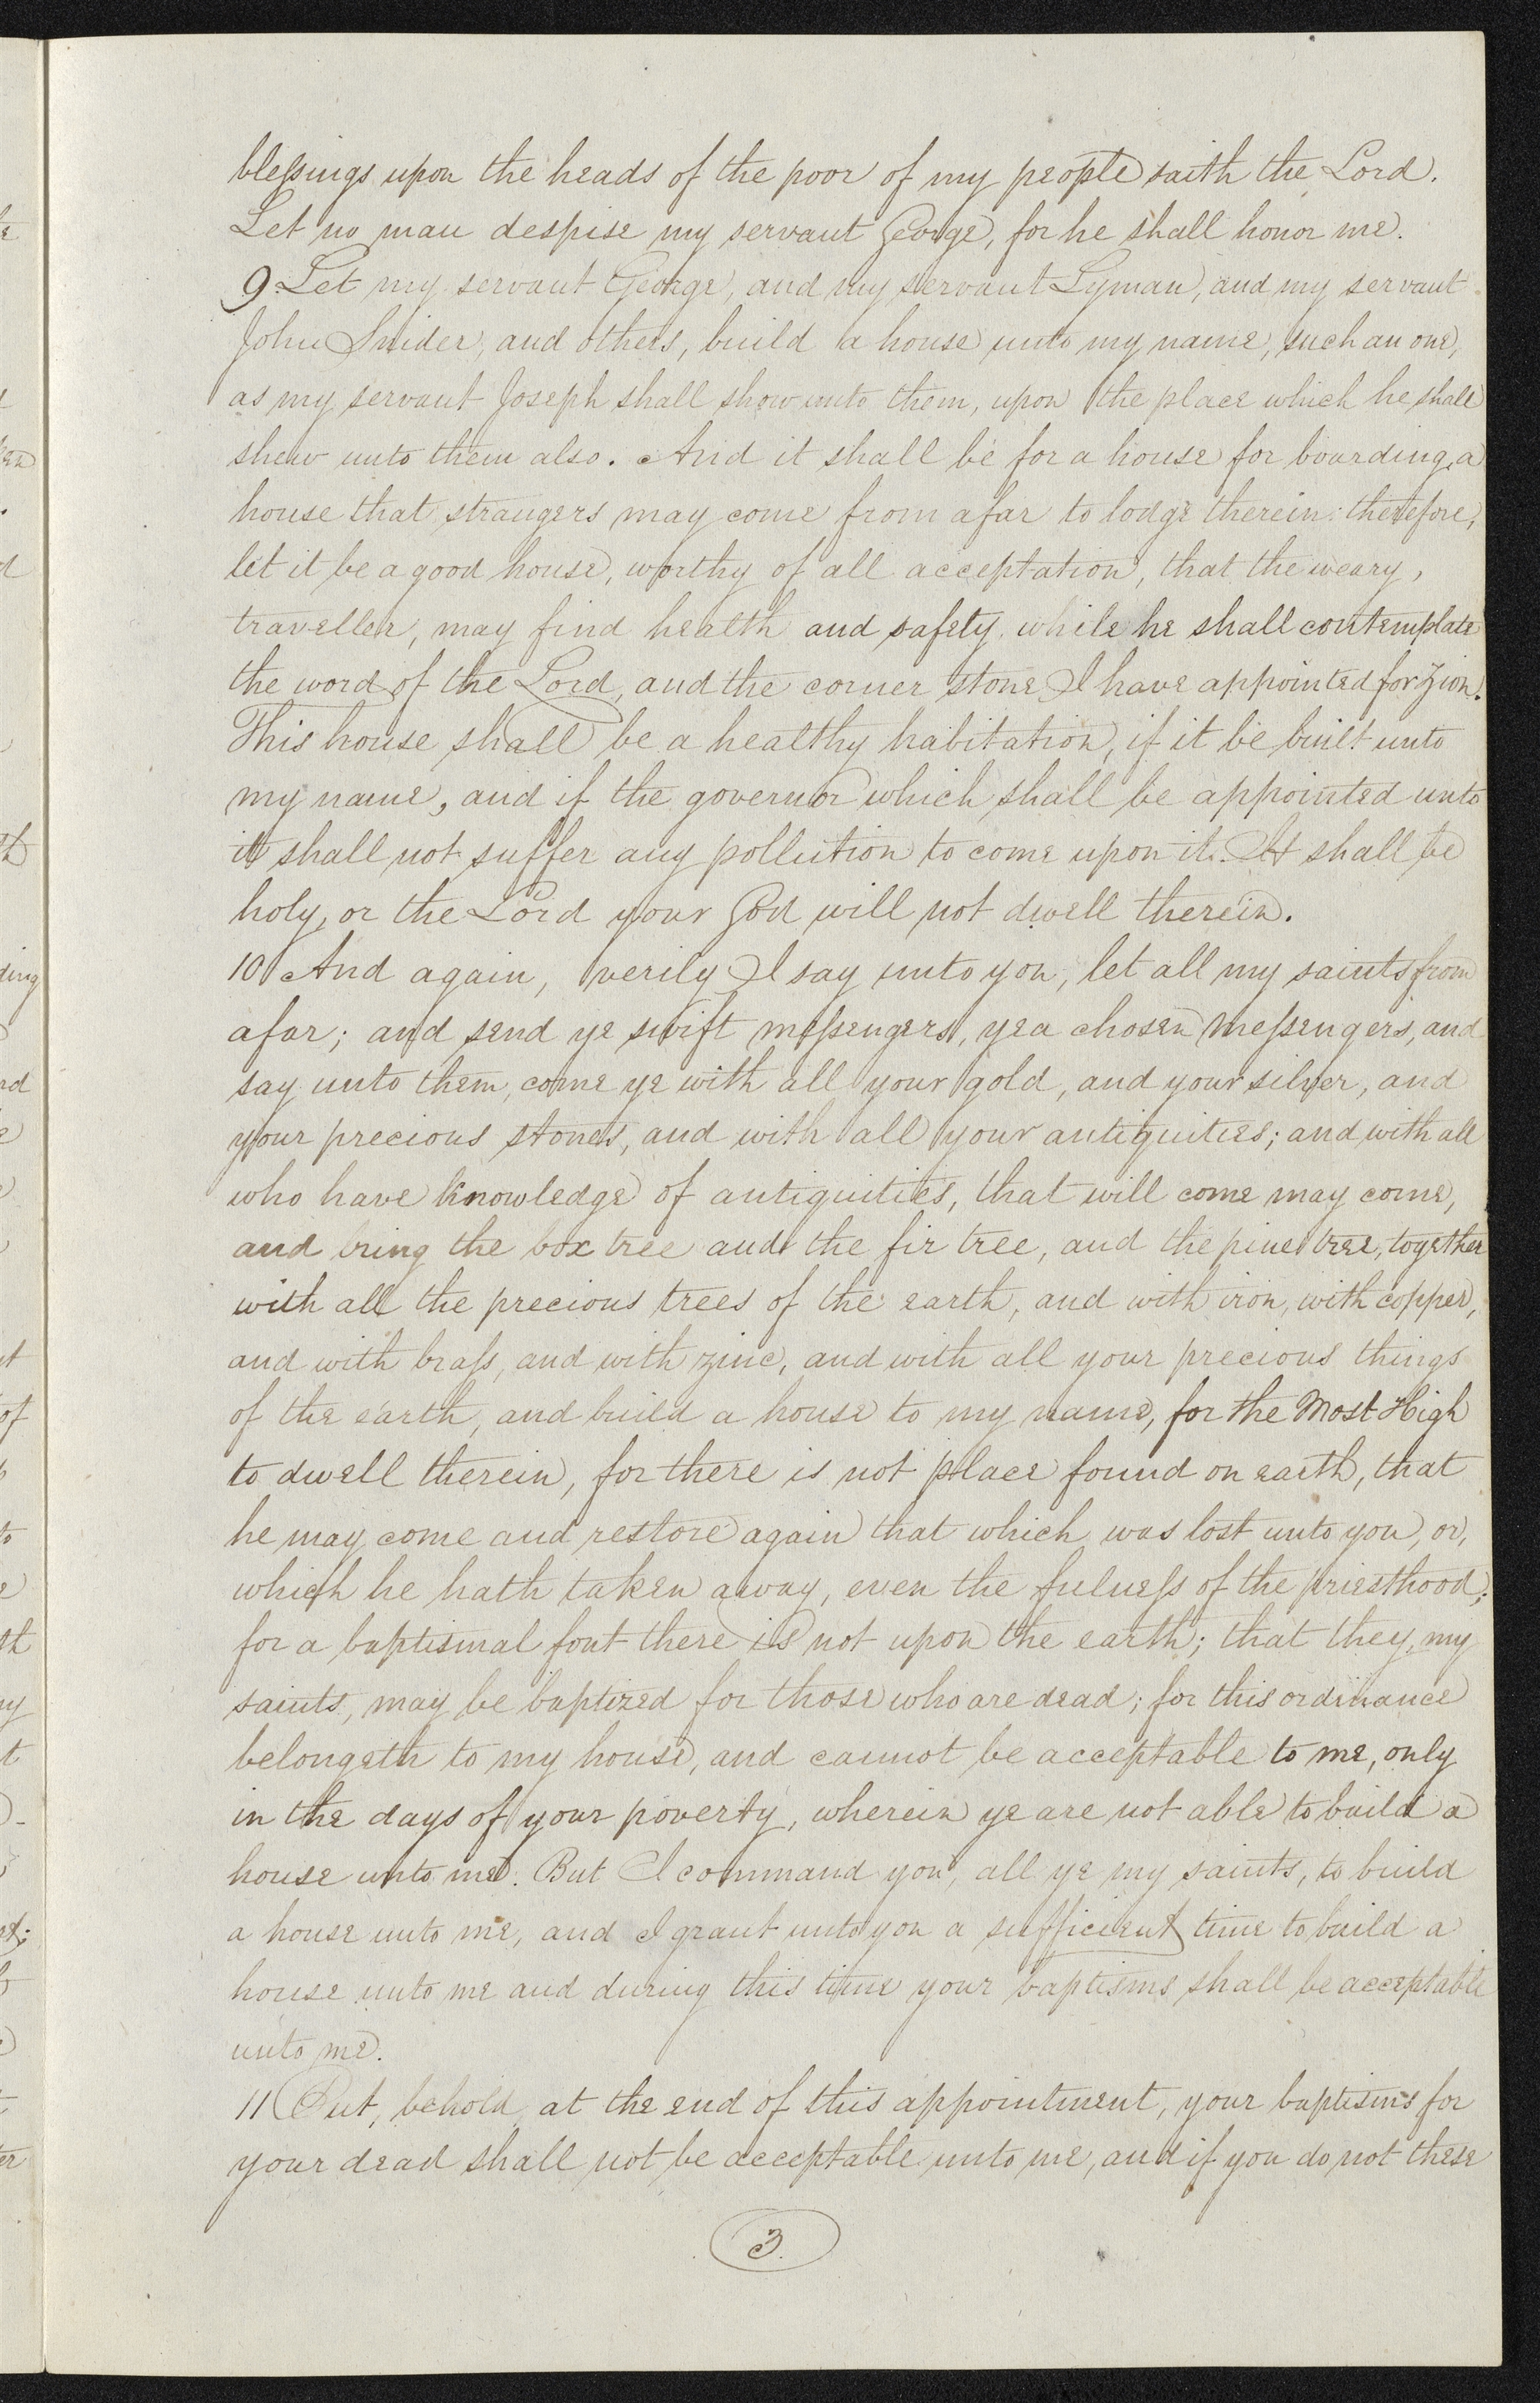 blessings upon the heads of the poor of my people saith the Lord.
Let no man despise my servant George, for he shall honor me.
9 Let my servant George, and my servant Lyman, and my servant
John Snider, and others, build a house unto my name, such an one,
as my servant Joseph shall show unto them, upon the place which he shall
shew unto them also. And it shall be for a house for boarding, a
house that strangers may come from afar to lodge therein: therefore,
let it be a good house, worthy of all acceptation, that the weary,
traveller, may find health and safety while he shall contemplate
the word of the Lord, and the corner stone I have appointed for Zion.
This house shall be a healthy habitation, if it be built unto
my name, and if the governor which shall be appointed unto
it shall not suffer any pollution to come upon it. It shall be
holy, or the Lord your God will not dwell therein.
10 And again, verily I say unto you, let all my saints from
afar; and send ye swift messengers, yea chosen messengers, and
say unto them, come ye with all your gold, and your silver, and
your precious stones, and with all your antiquities; and with all
who have knowledge of antiquities, that will come may come,
and bring the box tree and the fir tree, and the pine tree, together
with all the precious trees of the earth, and with iron, with copper,
and with brass, and with zinc, and with all your precious things
of the earth, and build a house to my name, for the Most High
to dwell therein, for there is not place found on earth, that
he may come and restore again that which was lost unto you, or,
which he hath taken away, even the fulness of the priesthood;
for a baptismal font there is not upon the earth; that they, my
saints, may be baptized for those who are dead; for this ordinance
belongeth to my house, and cannot be acceptable to me, only
in the days of your poverty, wherein ye are not able to build a
house unto me. But I command you, all ye my saints, to build
a house unto me, and I grant unto you a sufficient time to build a
house unto me and during this time your baptisms shall be acceptable
unto me.
11 But, behold, at the end of this appointment, your baptisms for
your dead shall not be acceptable unto me, and if you do not these
3.